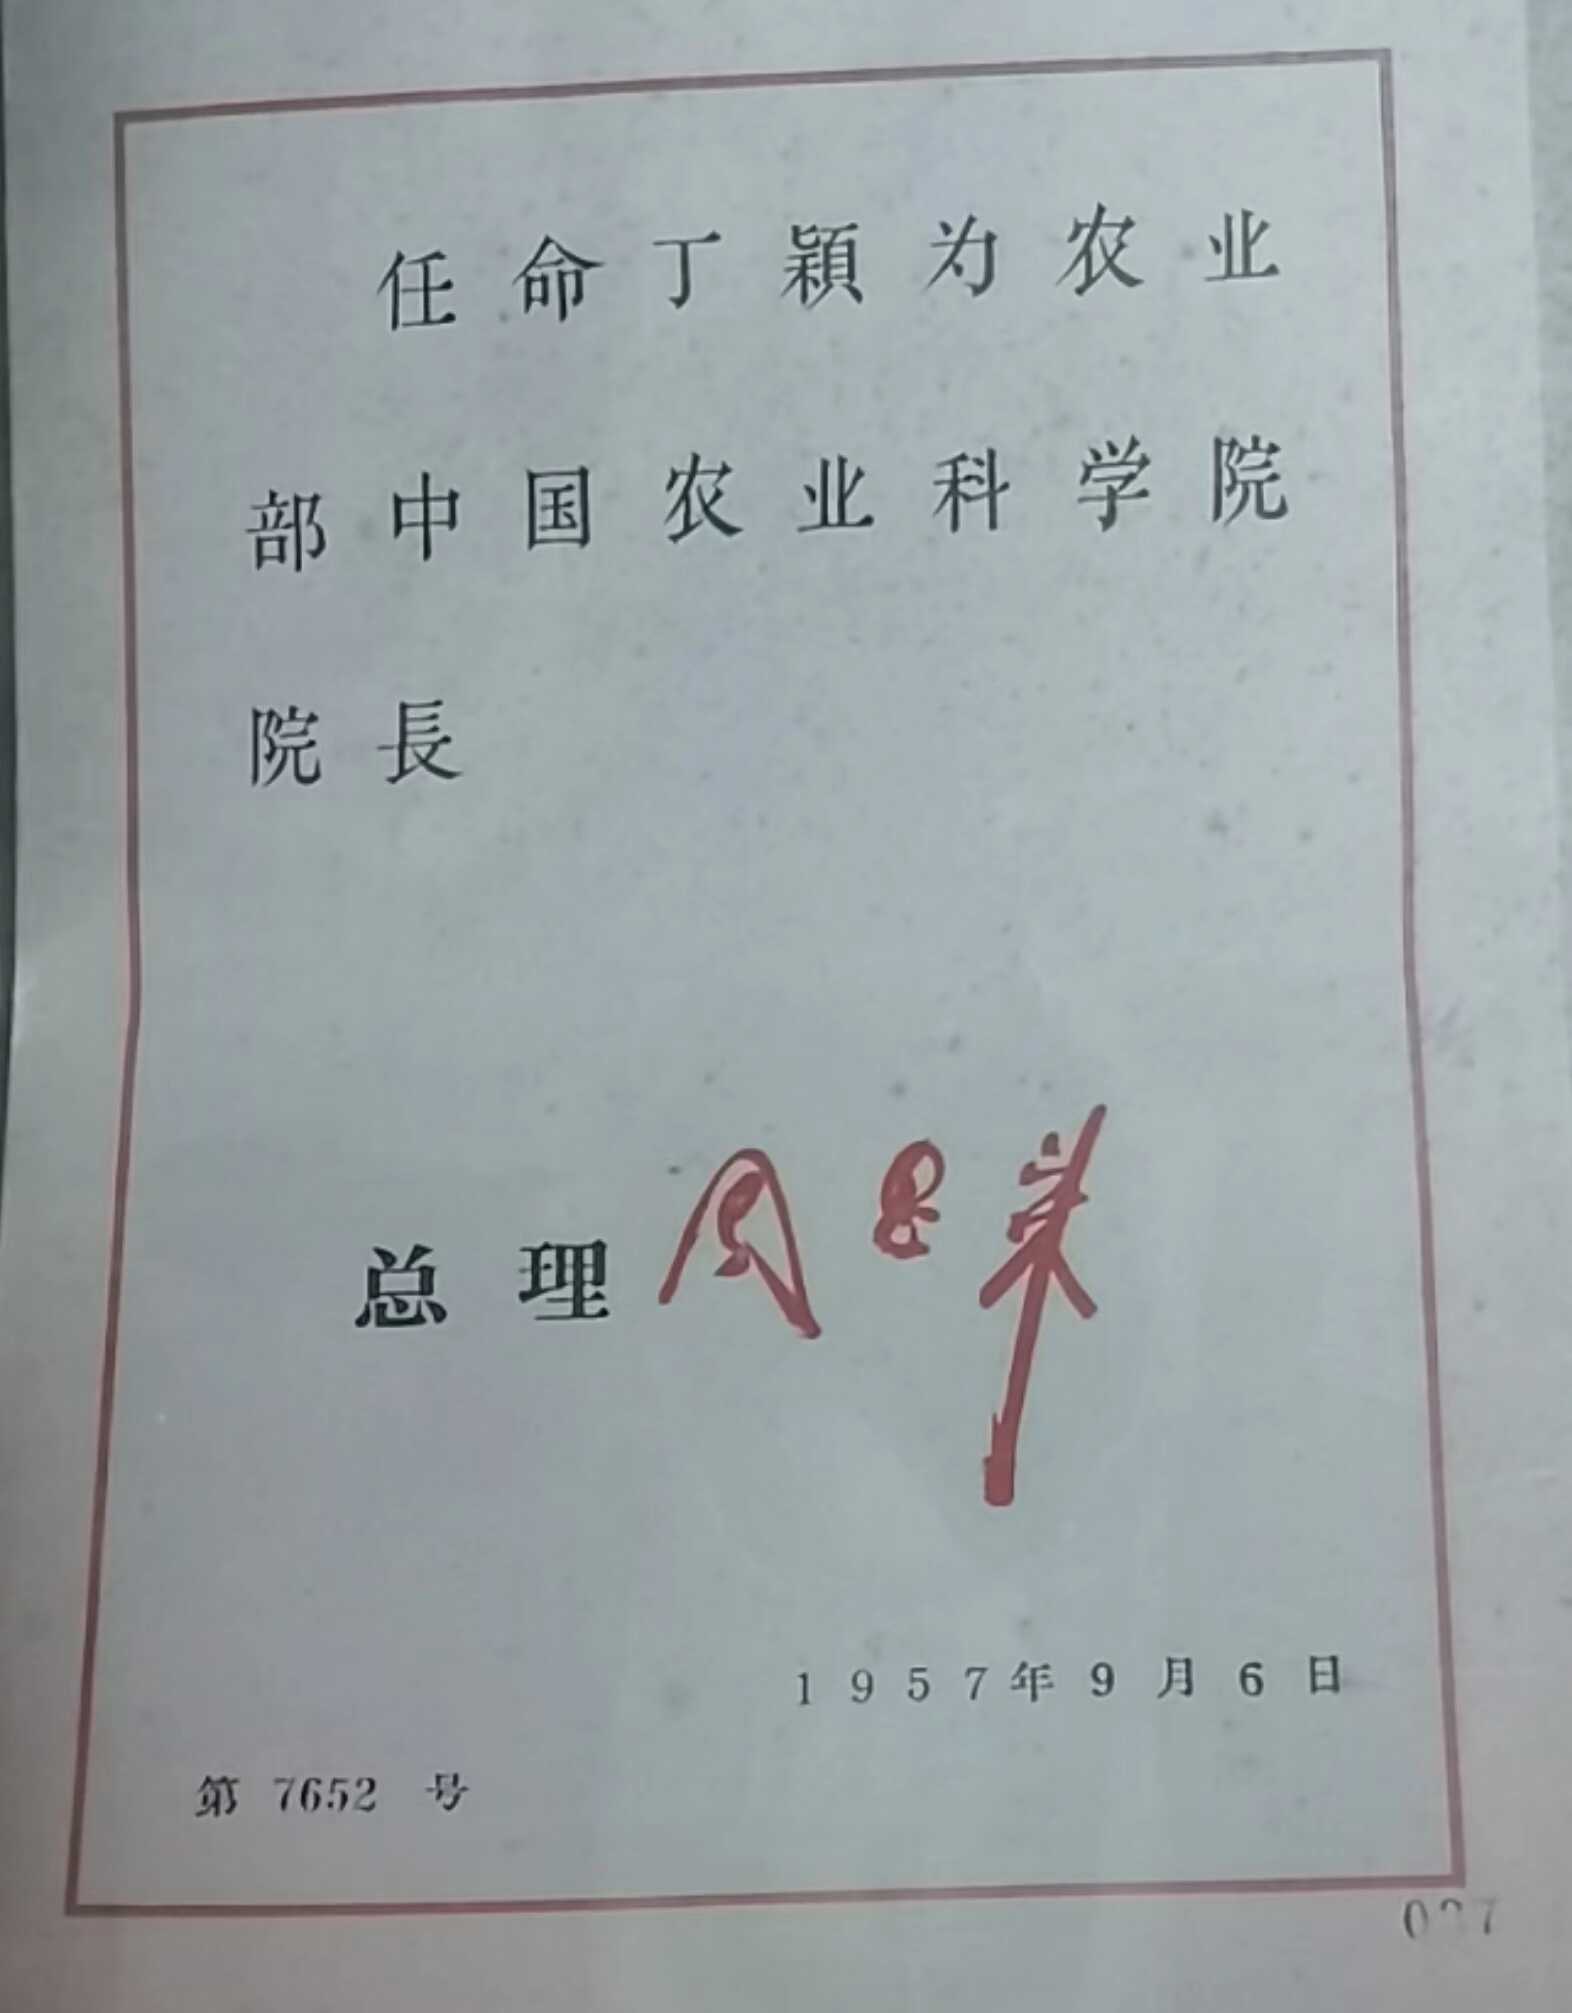 任命丁穎为农业
部中国农业科学院
院長
总理 周恩来
1957年9月6日
第 7652 号